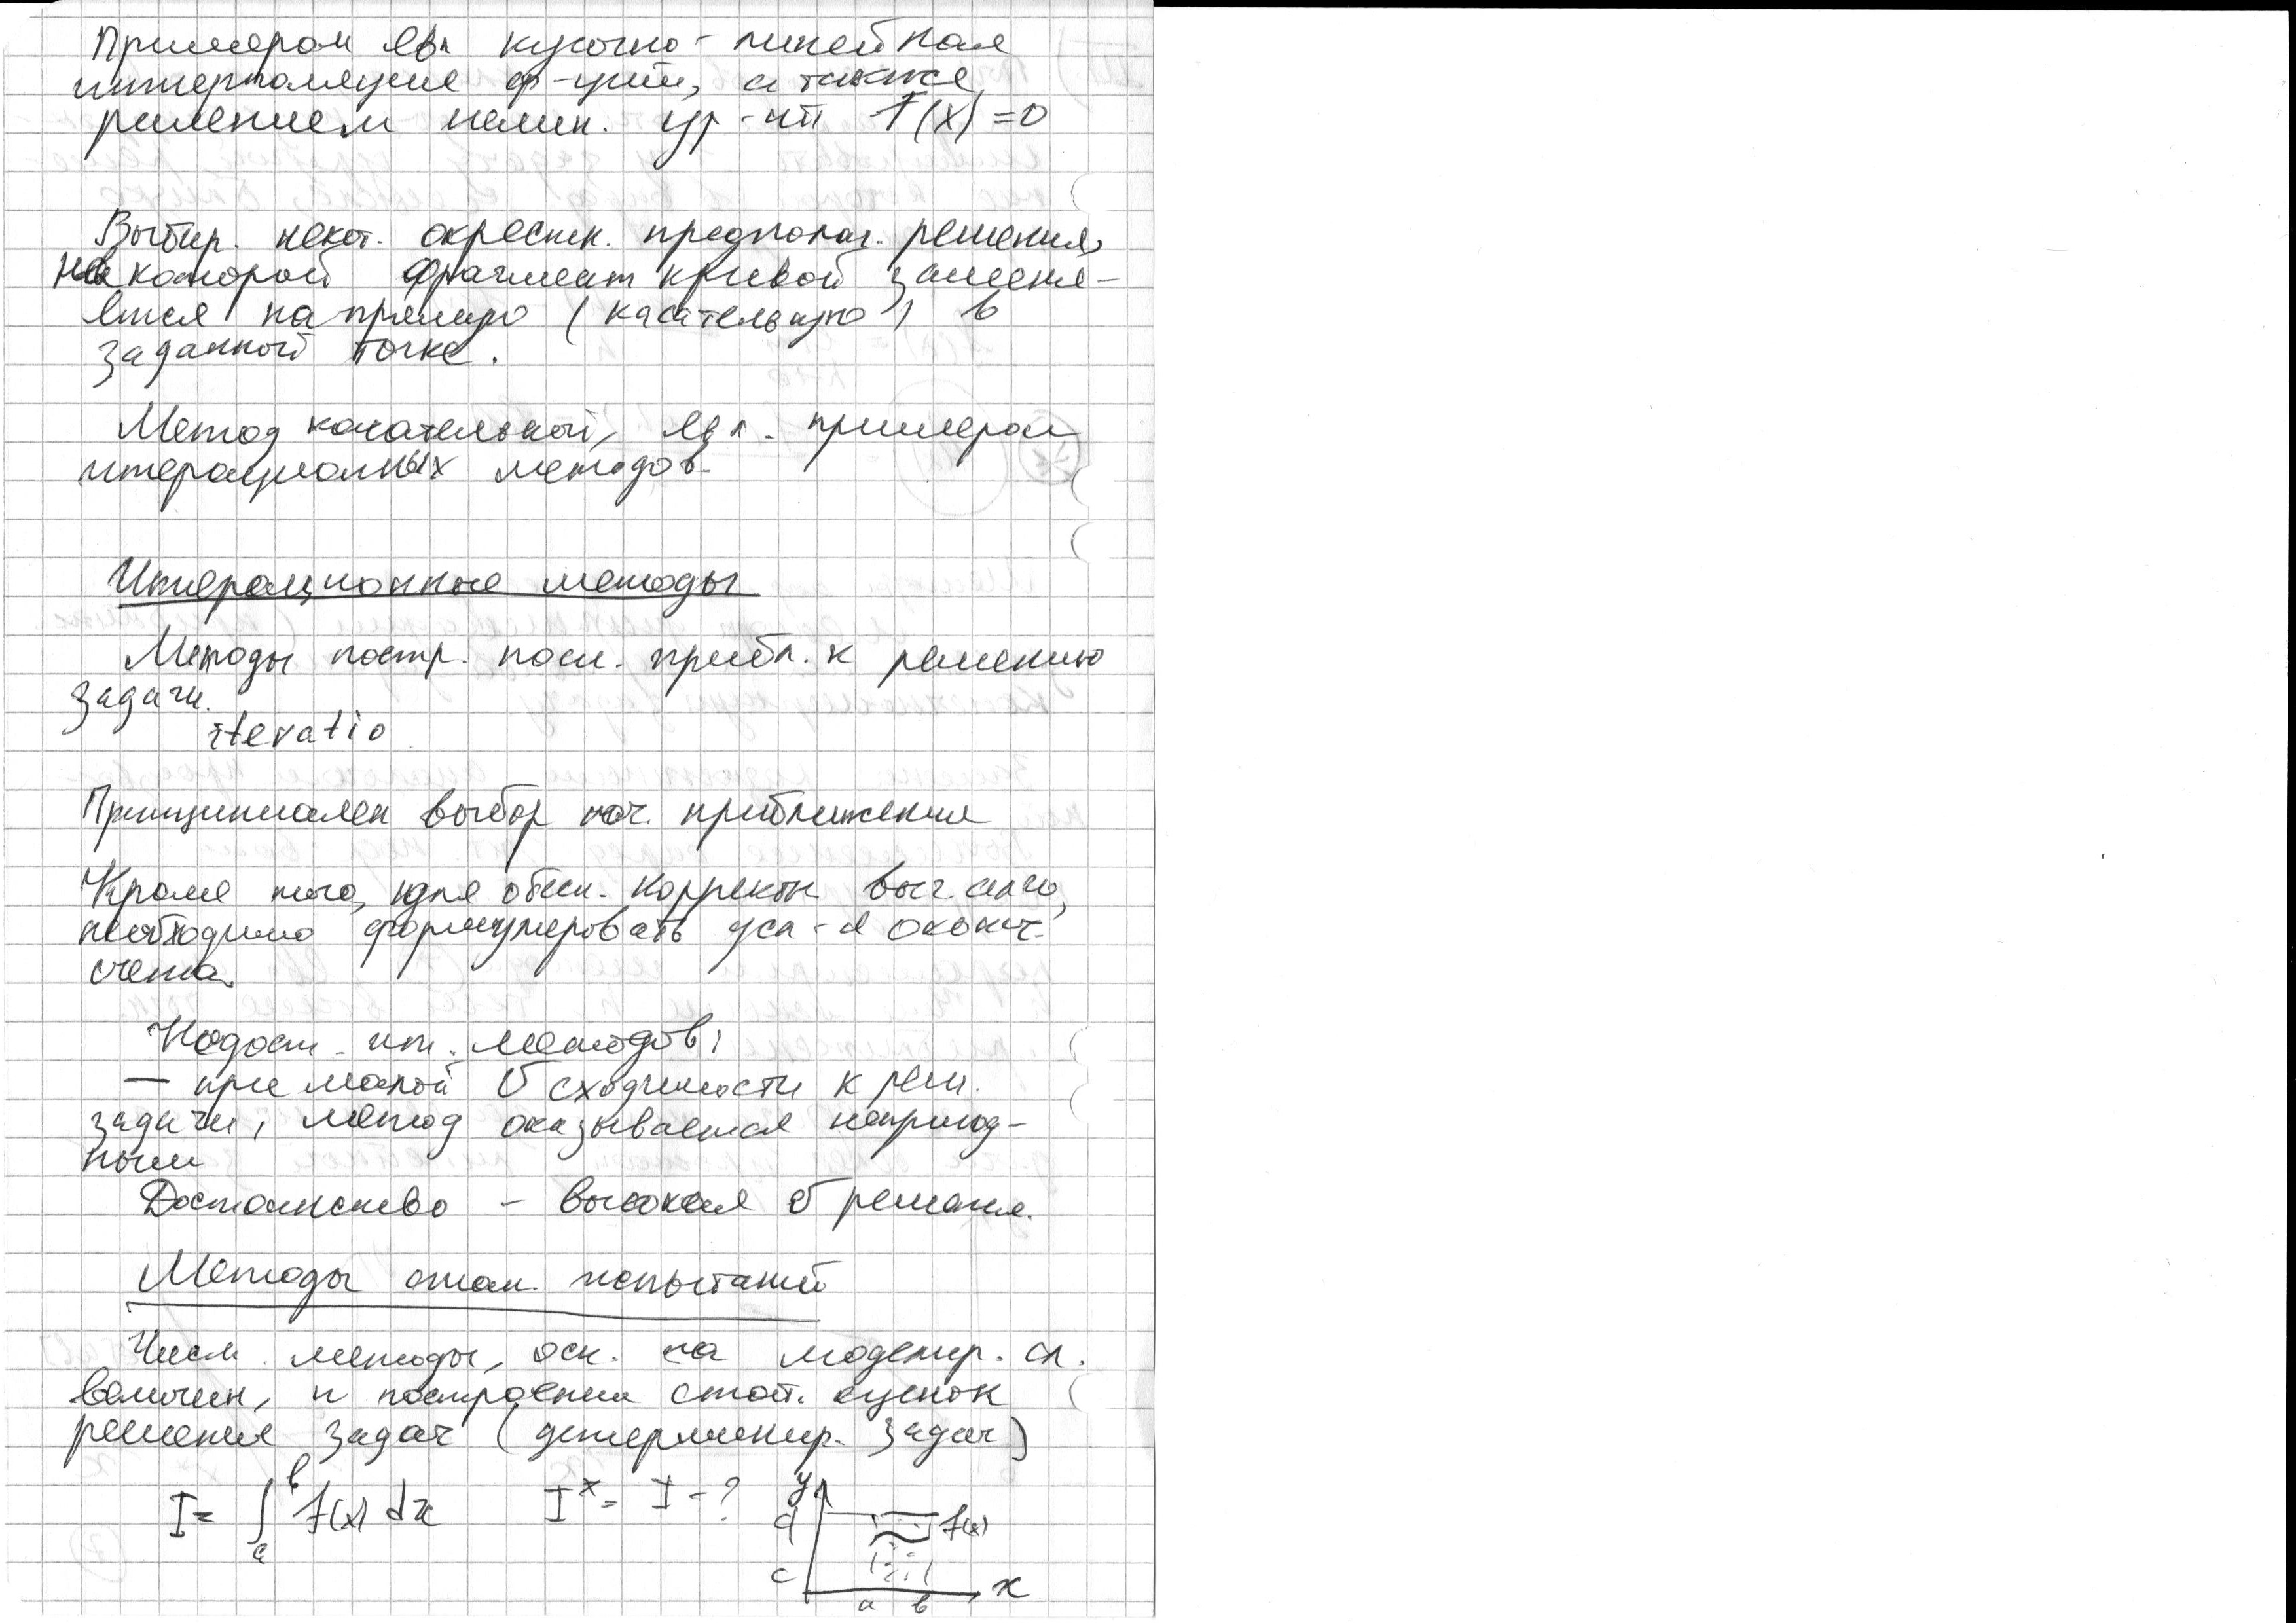 Примером явл кусочно-линейная
интерполяция ф-ций, а также
решением нелин. ур-ий F(x)=0
Выбир. некот. окрестн. предполаг. решения,
на которой фрагмент кривой заменя-
ется на прямую (касательную) в
заданной точке.
Метод касательной, явл. примером
итерационных методов
Итерационные методы
Методы постр. посл. прибл. к решению
задачи.
iteratio
Принципиален выбор нач. приближения
Кроме того, для обесп. корректн выч. алго,
необходимо формулировать усл-я оконч.
счета.
Недост. ит. методов:
— при малой V сходимости к реш.
задачи, метод оказывается непригод-
ным
Достоинство – высокая V решения.
Методы стат. испытаний
Числ. методы, осн. на моделир. сл.
величин, и построении стат. оценок
решения задач (детерминир. задач)
I = ∫ₐᵇ f(x) dx   I* = I - ?
y
d f(x)
c
x
a b